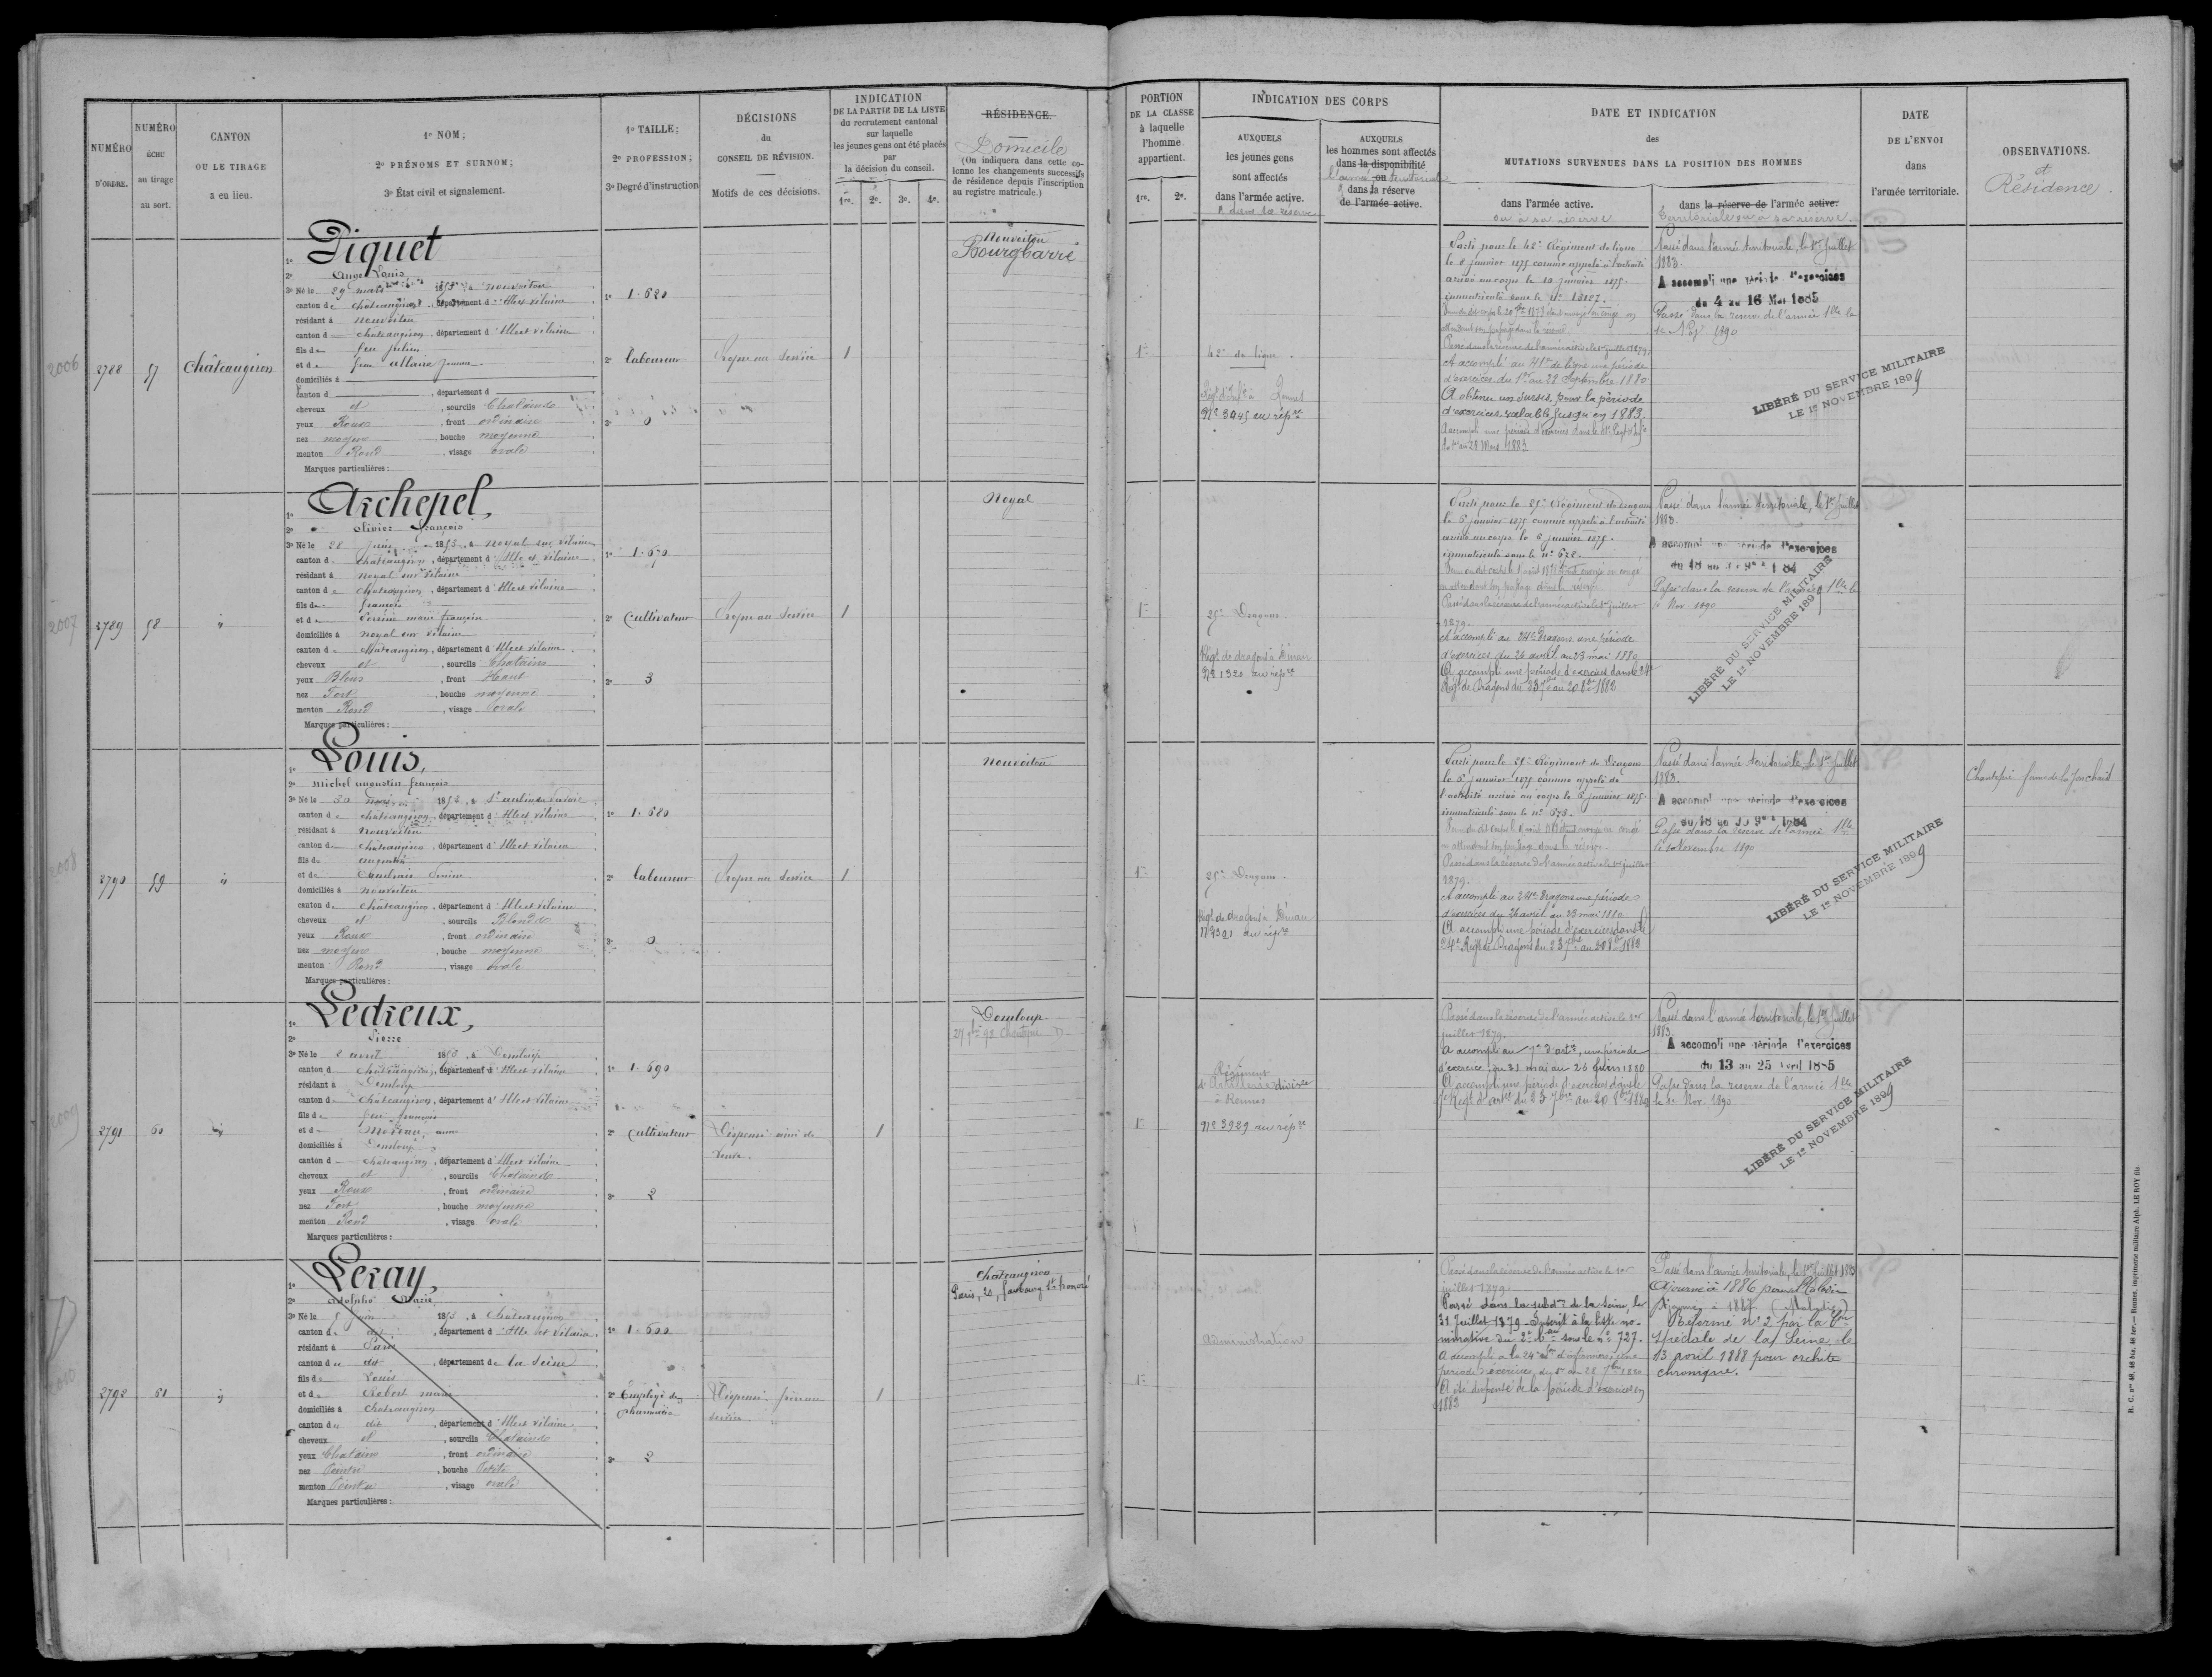 NUMÉRO D'ORDRE.
NUMÉRO ÉCHU au tirage au sort.
CANTON OU LE TIRAGE a eu lieu.
1º NOM;
2º PRÉNOMS ET SURNOM;
3º État civil et signalement.
1º TAILLE;
2º PROFESSION;
3º Degré d'instruction
DÉCISIONS du CONSEIL DE RÉVISION.
Motifs de ces décisions.
INDICATION
DE LA PARTIE DE LA LISTE
du recrutement cantonal
sur laquelle
les jeunes gens ont été placés
par
la décision du conseil.
1re. 2e. 3e. 4e.
RÉSIDENCE.
Domicile
(On indiquera dans cette co-
lonne les changements successifs
de résidence depuis l'inscription
au registre matricule.)
PORTION
DE LA CLASSE
à laquelle
l'homme
appartient.
1re. 2e.
INDICATION DES CORPS
AUXQUELS
les jeunes gens
sont affectés
dans l'armée active.
et dans la réserve
AUXQUELS
les hommes sont affectés
dans la disponibilité
l'armée ou territoriale
dans la réserve
de l'armée active.
DATE ET INDICATION
des
MUTATIONS SURVENUES DANS LA POSITION DES HOMMES
dans l'armée active.
ou à sa réserve
dans la réserve de l'armée active.
territoriale ou à sa réserve
DATE
DE L'ENVOI
dans
l'armée territoriale.
OBSERVATIONS.
et
Résidence
2006
2788
57
Châteaugiron
1º Piquet
2º Ange Louis
3º Né le 29 mars 1853, à Nouvoitou
canton de Châteaugiron, département d'Ille et Vilaine
résidant à Nouvoitou
canton de Châteaugiron, département d'Ille et Vilaine
fils de feu Julien
et de feue Allaire Jeanne
domiciliés à
canton d , département d
cheveux et , sourcils Chatains
yeux Roux , front ordinaire
nez moyen , bouche moyenne
menton Rond , visage ovale
Marques particulières:
1º 1.620
2º Laboureur
3º 0
Propre au service
1
Nouvoitou
Bourgbarré
1re
42e de ligne
Régt d'Infie à Rennes
Nº 3045 au répre
Parti pour le 42e Régiment de ligne
le 8 janvier 1875 comme appelé à l'activité
arrivé au corps le 10 janvier 1875.
immatriculé sous le nº 13127.
Passé dans la réserve de l'armée active le 1er juillet 1879.
A accompli au 41e de ligne une période
d'exercices du 1er au 28 Septembre 1880
A obtenu un sursis pour la période
d'exercices valable jusqu'en 1883.
Passé dans l'armée territoriale, le 1er Juillet
1883.
A accompli une période d'exercices
du 4 au 16 Mai 1885
Passé dans la réserve de l'armée tlle le
1er Nov. 1890
LIBÉRÉ DU SERVICE MILITAIRE
LE 1er NOVEMBRE 1899
2007
2789
58
"
1º Archepel,
2º Olivier François
3º Né le 28 Juin 1853, à Noyal sur Vilaine
canton de Châteaugiron, département d'Ille et Vilaine
résidant à Noyal sur Vilaine
canton de Châteaugiron, département d'Ille et Vilaine
fils de François
et de Perrine marie françoise
domiciliés à Noyal sur Vilaine
canton de Châteaugiron, département d'Ille et Vilaine
cheveux et , sourcils Chatains
yeux Bleus , front Haut
nez Fort , bouche moyenne
menton Rond , visage ovale
Marques particulières:
1º 1.670
2º Cultivateur
3º 3
Propre au service
1
Noyal
1re
25e Dragons
Régt de dragons à Dinan
Nº 1320 au répre
Parti pour le 25e Régiment de dragons
le 6 janvier 1875 comme appelé à l'activité
arrivé au corps le 6 janvier 1875.
immatriculé sous le nº 628.
Passé dans la réserve de l'armée active le 1er juillet
1879.
A accompli au 24e Dragons une période
d'exercices du 26 avril au 23 mai 1880
A accompli une période d'exercices dans le 24e
Régt de Dragons du 23 7bre au 20 8bre 1882
Passé dans l'armée territoriale, le 1er Juillet
1883.
A accompli une période d'exercices
du 18 au 30 9bre 1884
Passé dans la réserve de l'armée tlle le
1er Nov. 1890
LIBÉRÉ DU SERVICE MILITAIRE
LE 1er NOVEMBRE 1899
2008
2790
59
"
1º Louis,
2º Michel Augustin François
3º Né le 30 1853, à St Aubin du Pavail
canton de Châteaugiron, département d'Ille et Vilaine
résidant à Nouvoitou
canton de Châteaugiron, département d'Ille et Vilaine
fils de Augustin
et de
domiciliés à Nouvoitou
canton de Châteaugiron, département d'Ille et Vilaine
cheveux et , sourcils Blonds
yeux Roux , front ordinaire
nez moyen , bouche moyenne
menton Rond , visage ovale
Marques particulières:
1º 1.680
2º Laboureur
3º 0
Propre au service
1
Nouvoitou
1re
25e Dragons
Régt de dragons à Dinan
Nº 1321 au répre
Parti pour le 25e Régiment de Dragons
le 6 janvier 1875 comme appelé de
l'activité arrivé au corps le 6 janvier 1875.
immatriculé sous le nº 675.
Passé dans la réserve de l'armée active le 1er juillet
1879.
A accompli au 24e Dragons une période
d'exercices du 26 avril au 23 mai 1880
A accompli une période d'exercices dans le
24e Régt de Dragons du 23 7bre au 20 8bre 1882
Passé dans l'armée territoriale, le 1er Juillet
1883.
A accompli une période d'exercices
du 18 au 30 9bre 1884
Passé dans la réserve de l'armée tlle
le 1er Novembre 1890
LIBÉRÉ DU SERVICE MILITAIRE
LE 1er NOVEMBRE 1899
Chantepie
2009
2791
60
"
1º Ledreux,
2º Pierre
3º Né le 2 avril 1853, à Domloup
canton de Châteaugiron, département d'Ille et Vilaine
résidant à Domloup
canton de Châteaugiron, département d'Ille et Vilaine
fils de feu François
et de Moreau, Anne
domiciliés à Domloup
canton de Châteaugiron, département d'Ille et Vilaine
cheveux et , sourcils Chatains
yeux Roux , front ordinaire
nez Fort , bouche moyenne
menton Rond , visage ovale
Marques particulières:
1º 1.690
2º Cultivateur
3º 2
Dispensé ainé de
veuve.
1
Domloup
1re
Régiment
d'Artillerie divisre
à Rennes
Nº 3929 au répre
Passé dans la réserve de l'armée active le 1er
juillet 1879.
A accompli au 7e d'artie, une période
d'exercice, du 31 mai au 26 Juin 1880
A accompli une période d'exercices dans le
7e Régt d'artie du 23 7bre au 20 8bre 1882
Passé dans l'armée territoriale, le 1er Juillet
1883.
A accompli une période d'exercices
du 13 au 25 Avril 1885
Passé dans la réserve de l'armée tlle
le 1er Nov. 1890
LIBÉRÉ DU SERVICE MILITAIRE
LE 1er NOVEMBRE 1899
2010
2792
61
"
1º Leray,
2º Adolphe Marie
3º Né le 5 Juin 1853, à Châteaugiron
canton de dit , département d'Ille et Vilaine
résidant à Paris
canton du dit , département de la Seine
fils de Louis
et de Robert marie
domiciliés à Châteaugiron
canton du dit , département d'Ille et Vilaine
cheveux et , sourcils Chatains
yeux Chatains , front ordinaire
nez Pointu , bouche Petite
menton Pointu , visage ovale
Marques particulières:
1º 1.600
2º Employé de
pharmacie
3º 2
Dispensé frère au
service
1
Châteaugiron
Paris, 20, faubourg St honoré
1re
Administration
Passé dans la réserve de l'armée active le 1er
juillet 1879.
Passé dans la subdon de la Seine, le
31 Juillet 1879 - Inscrit à la liste no-
minative du 2e Bau sous le nº 727.
A été dispensé de la période d'exercices en
1883
Passé dans l'armée territoriale, le 1er Juillet 1883
Ajourné à 1886 pour Maladie
Ajourné à 1887 (Maladie)
Réformé nº 2 par la Con
Spéciale de la Seine, le
13 avril 1888 pour orchite
chronique.
R. C. nos 48, 48 bis, 48 ter. — Rennes, imprimerie militaire Alph. LE ROY fils